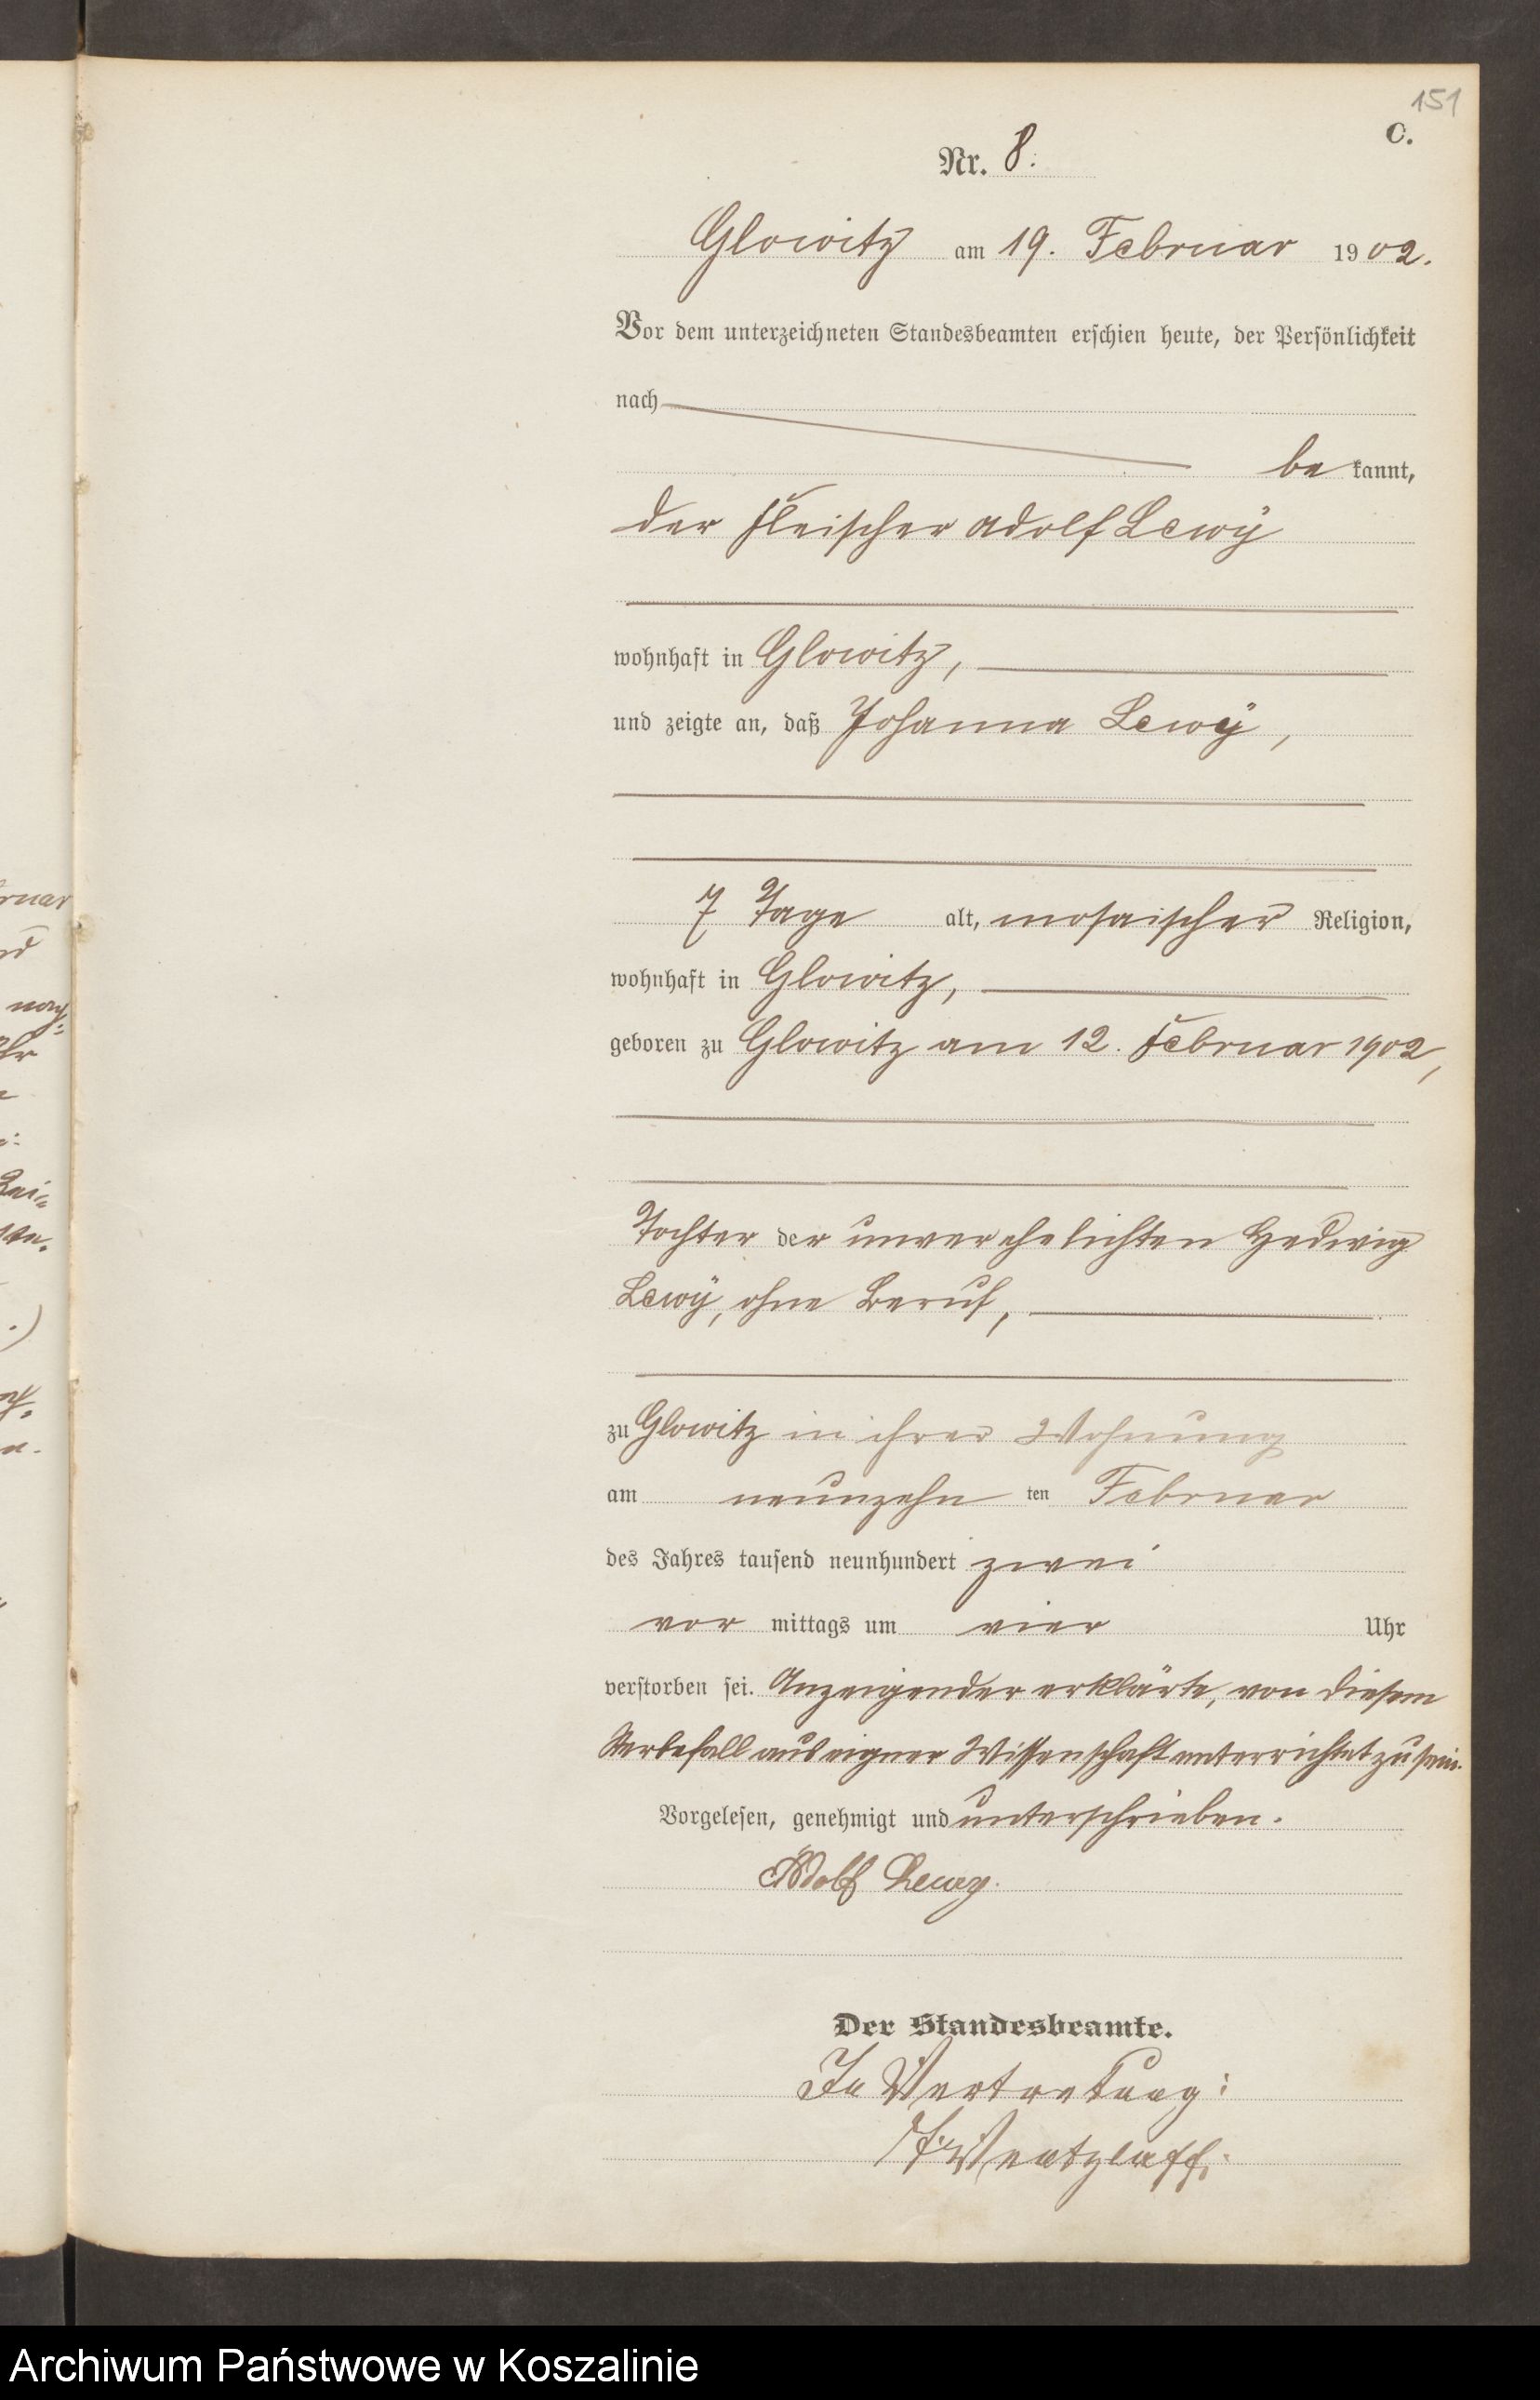 151
C.
Nr. 8.
Glowitz am 19. Februar 1902.
Vor dem unterzeichneten Standesbeamten erschien heute, der Persönlichkeit
nach
be kannt,
der Fleischer Adolf Lewÿ
wohnhaft in Glowitz,
und zeigte an, daß Johanna Lewÿ,
7 Tage alt, mosaischer Religion,
wohnhaft in Glowitz,
geboren zu Glowitz am 12. Februar 1902,
Tochter der unverehelichten Hedwig
Lewÿ, ohne Beruf,
zu Glowitz in ihrer Wohnung
am neunzehn ten Februar
des Jahres tausend neunhundert zwei
vor mittags um vier Uhr
verstorben sei. Anzeigender erklärte, von diesem
Sterbefall aus eigner Wissenschaft unterrichtet zu sein.
Vorgelesen, genehmigt und unterschrieben.
Adolf Lewy.
Der Standesbeamte.
In Vertretung:
Wentzlaff.
Archiwum Państwowe w Koszalinie